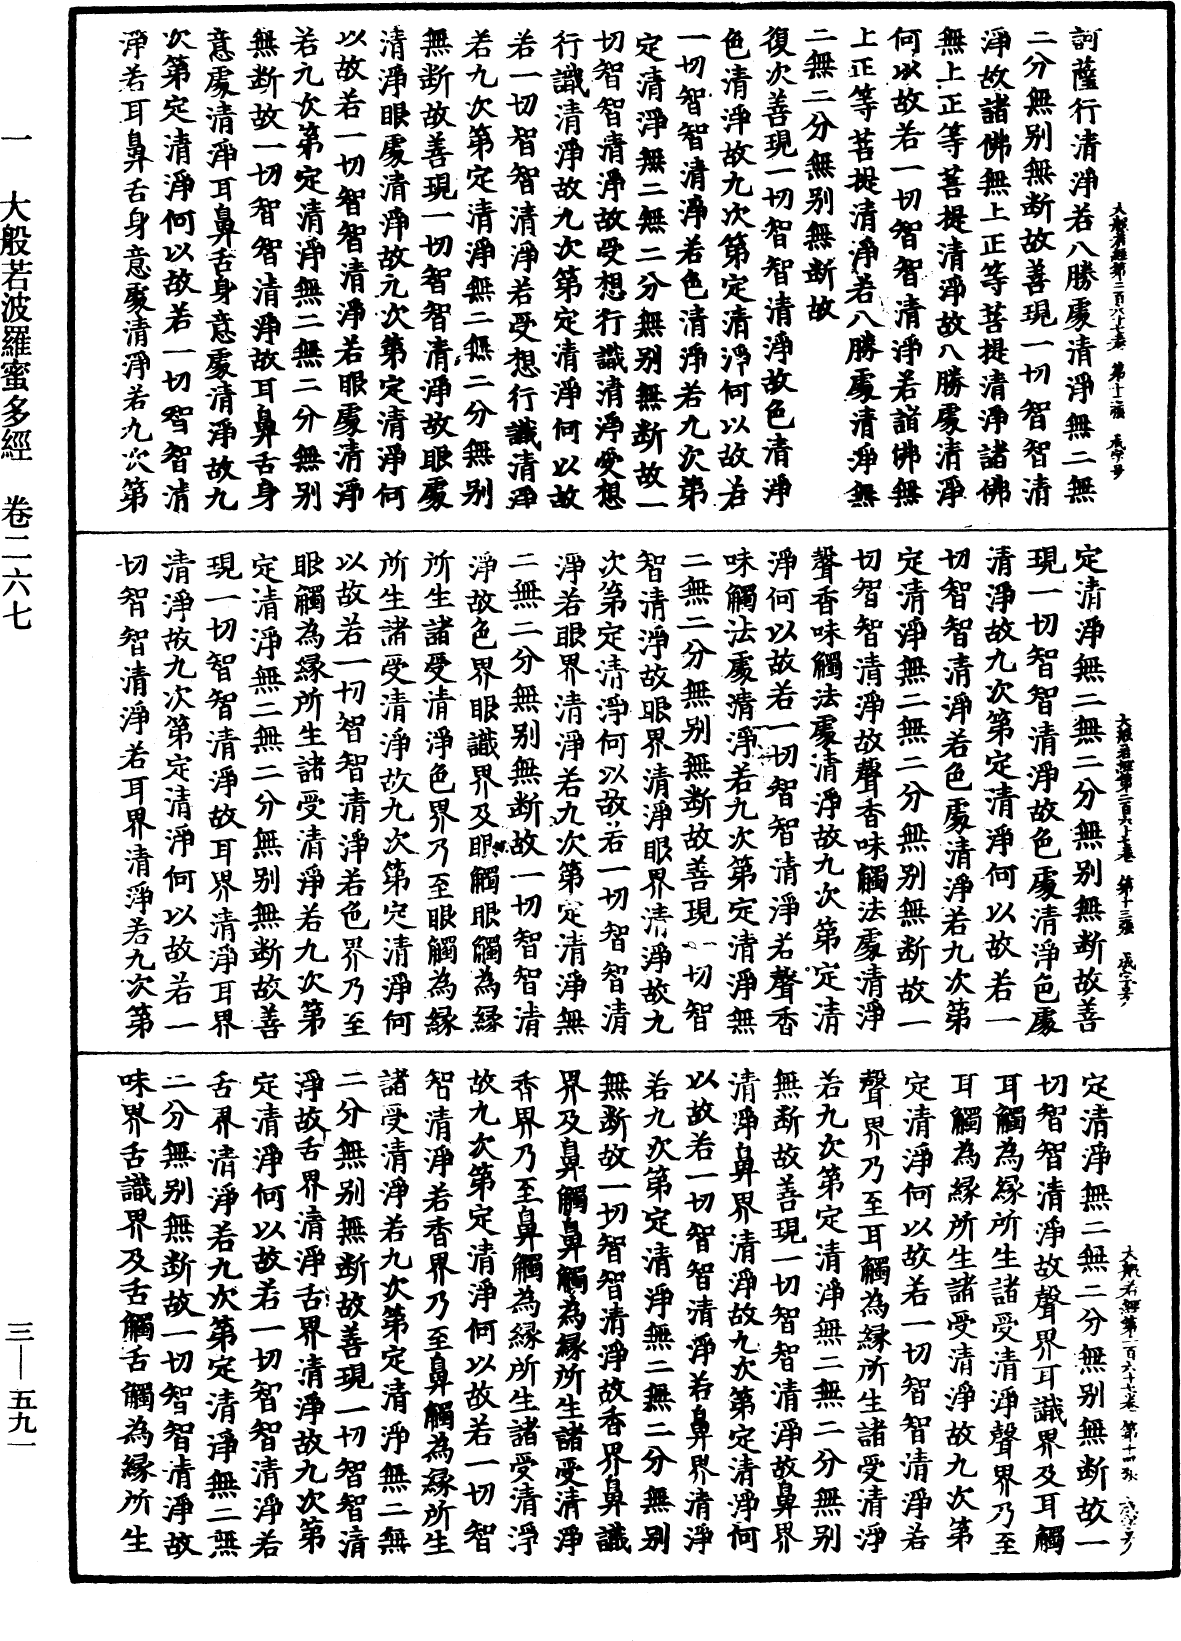 大般若經第二百六十七卷 第十二張 咸字号
訶薩行清淨若八勝處清淨無二無
二分無别無断故善現一切智智清
淨故諸佛無上正等菩提清淨諸佛
無上正等菩提清淨故八勝處清淨
何以故若一切智智清淨若諸佛無
上正等菩提清淨若八勝處清淨無
二無二分無别無断故
復次善現一切智智清淨故色清淨
色清淨故九次第定清淨何以故若
一切智智清淨若色清淨若九次第
定清淨無二無二分無别無断故一
切智智清淨故受想行識清淨受想
行識清淨故九次第定清淨何以故
若一切智智清淨若受想行識清淨
若九次第定清淨無二無二分無别
無断故善現一切智智清淨故眼處
清淨眼處清淨故九次第定清淨何
以故若一切智智清淨若眼處清淨
若九次第定清淨無二無二分無别
無断故一切智智清淨故耳鼻舌身
意處清淨耳鼻舌身意處清淨故九
次第定清淨何以故若一切智智清
淨若耳鼻舌身意處清淨若九次第
大般若經第二百六十七卷 第十三張 咸字号
定清淨無二無二分無别無断故善
現一切智智清淨故色處清淨色處
清淨故九次第定清淨何以故若一
切智智清淨若色處清淨若九次第
定清淨無二無二分無别無断故一
切智智清淨故聲香味觸法處清淨
聲香味觸法處清淨故九次第定清
淨何以故若一切智智清淨若聲香
味觸法處清淨若九次第定清淨無
二無二分無别無断故善現一切智
智清淨故眼界清淨眼界清淨故九
次第定清淨何以故若一切智智清
淨若眼界清淨若九次第定清淨無
二無二分無别無断故一切智智清
淨故色界眼識界及眼觸眼觸為縁
所生諸受清淨色界乃至眼觸為縁
所生諸受清淨故九次第定清淨何
以故若一切智智清淨若色界乃至
眼觸為縁所生諸受清淨若九次第
定清淨無二無二分無别無断故善
現一切智智清淨故耳界清淨耳界
清淨故九次第定清淨何以故若一
切智智清淨若耳界清淨若九次第
大般若經第二百六十七卷 第十四張 咸字号
定清淨無二無二分無别無断故一
切智智清淨故聲界耳識界及耳觸
耳觸為縁所生諸受清淨聲界乃至
耳觸為縁所生諸受清淨故九次第
定清淨何以故若一切智智清淨若
聲界乃至耳觸為縁所生諸受清淨
若九次第定清淨無二無二分無别
無断故善現一切智智清淨故鼻界
清淨鼻界清淨故九次第定清淨何
以故若一切智智清淨若鼻界清淨
若九次第定清淨無二無二分無别
無断故一切智智清淨故香界鼻識
界及鼻觸鼻觸為縁所生諸受清淨
香界乃至鼻觸為縁所生諸受清淨
故九次第定清淨何以故若一切智
智清淨若香界乃至鼻觸為縁所生
諸受清淨若九次第定清淨無二無
二分無别無断故善現一切智智清
淨故舌界清淨舌界清淨故九次第
定清淨何以故若一切智智清淨若
舌界清淨若九次第定清淨無二無
二分無别無断故一切智智清淨故
味界舌識界及舌觸舌觸為縁所生
一 大般若波羅蜜多經 卷二六七 三—五九一